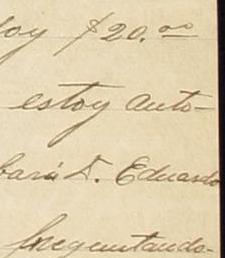 oy $20.00
estoy auto-
bará D. Eduardo
preguntando-